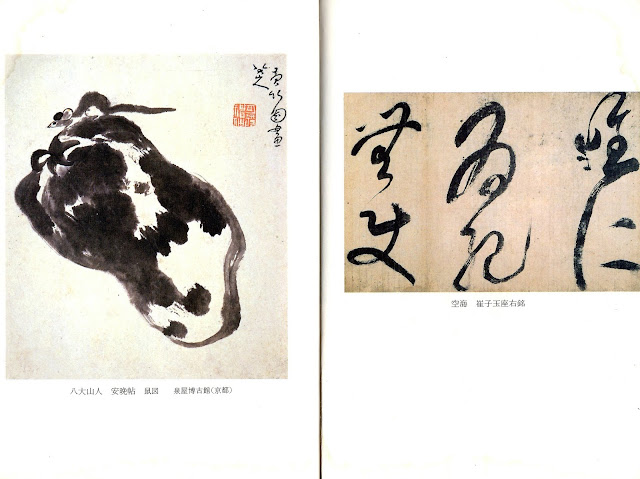 八大山人　安晩帖　鼠図　　泉屋博古館(京都)
唯仁
為紀
無使
空海　崔子玉座右銘